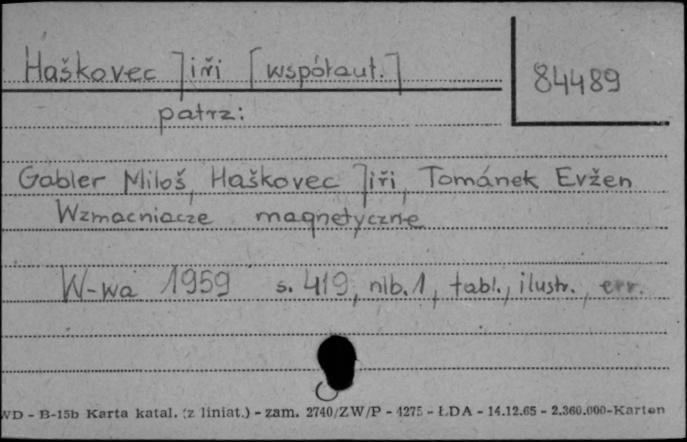 Haškovec Jiři [wspótaut.]
84489
patrz:
Gabler Miloš, Haškovec Jiři, Tománek Evžen
Wzmacniacze magnetyczne
W-wa 1959 s. 419, nlb. 1, tabl., ilustr., err.
WD - B-15b Karta katal. (z liniat.) - zam. 2740/ZW/P - 4275 - ŁDA - 14.12.65 - 2.360.000-Karton